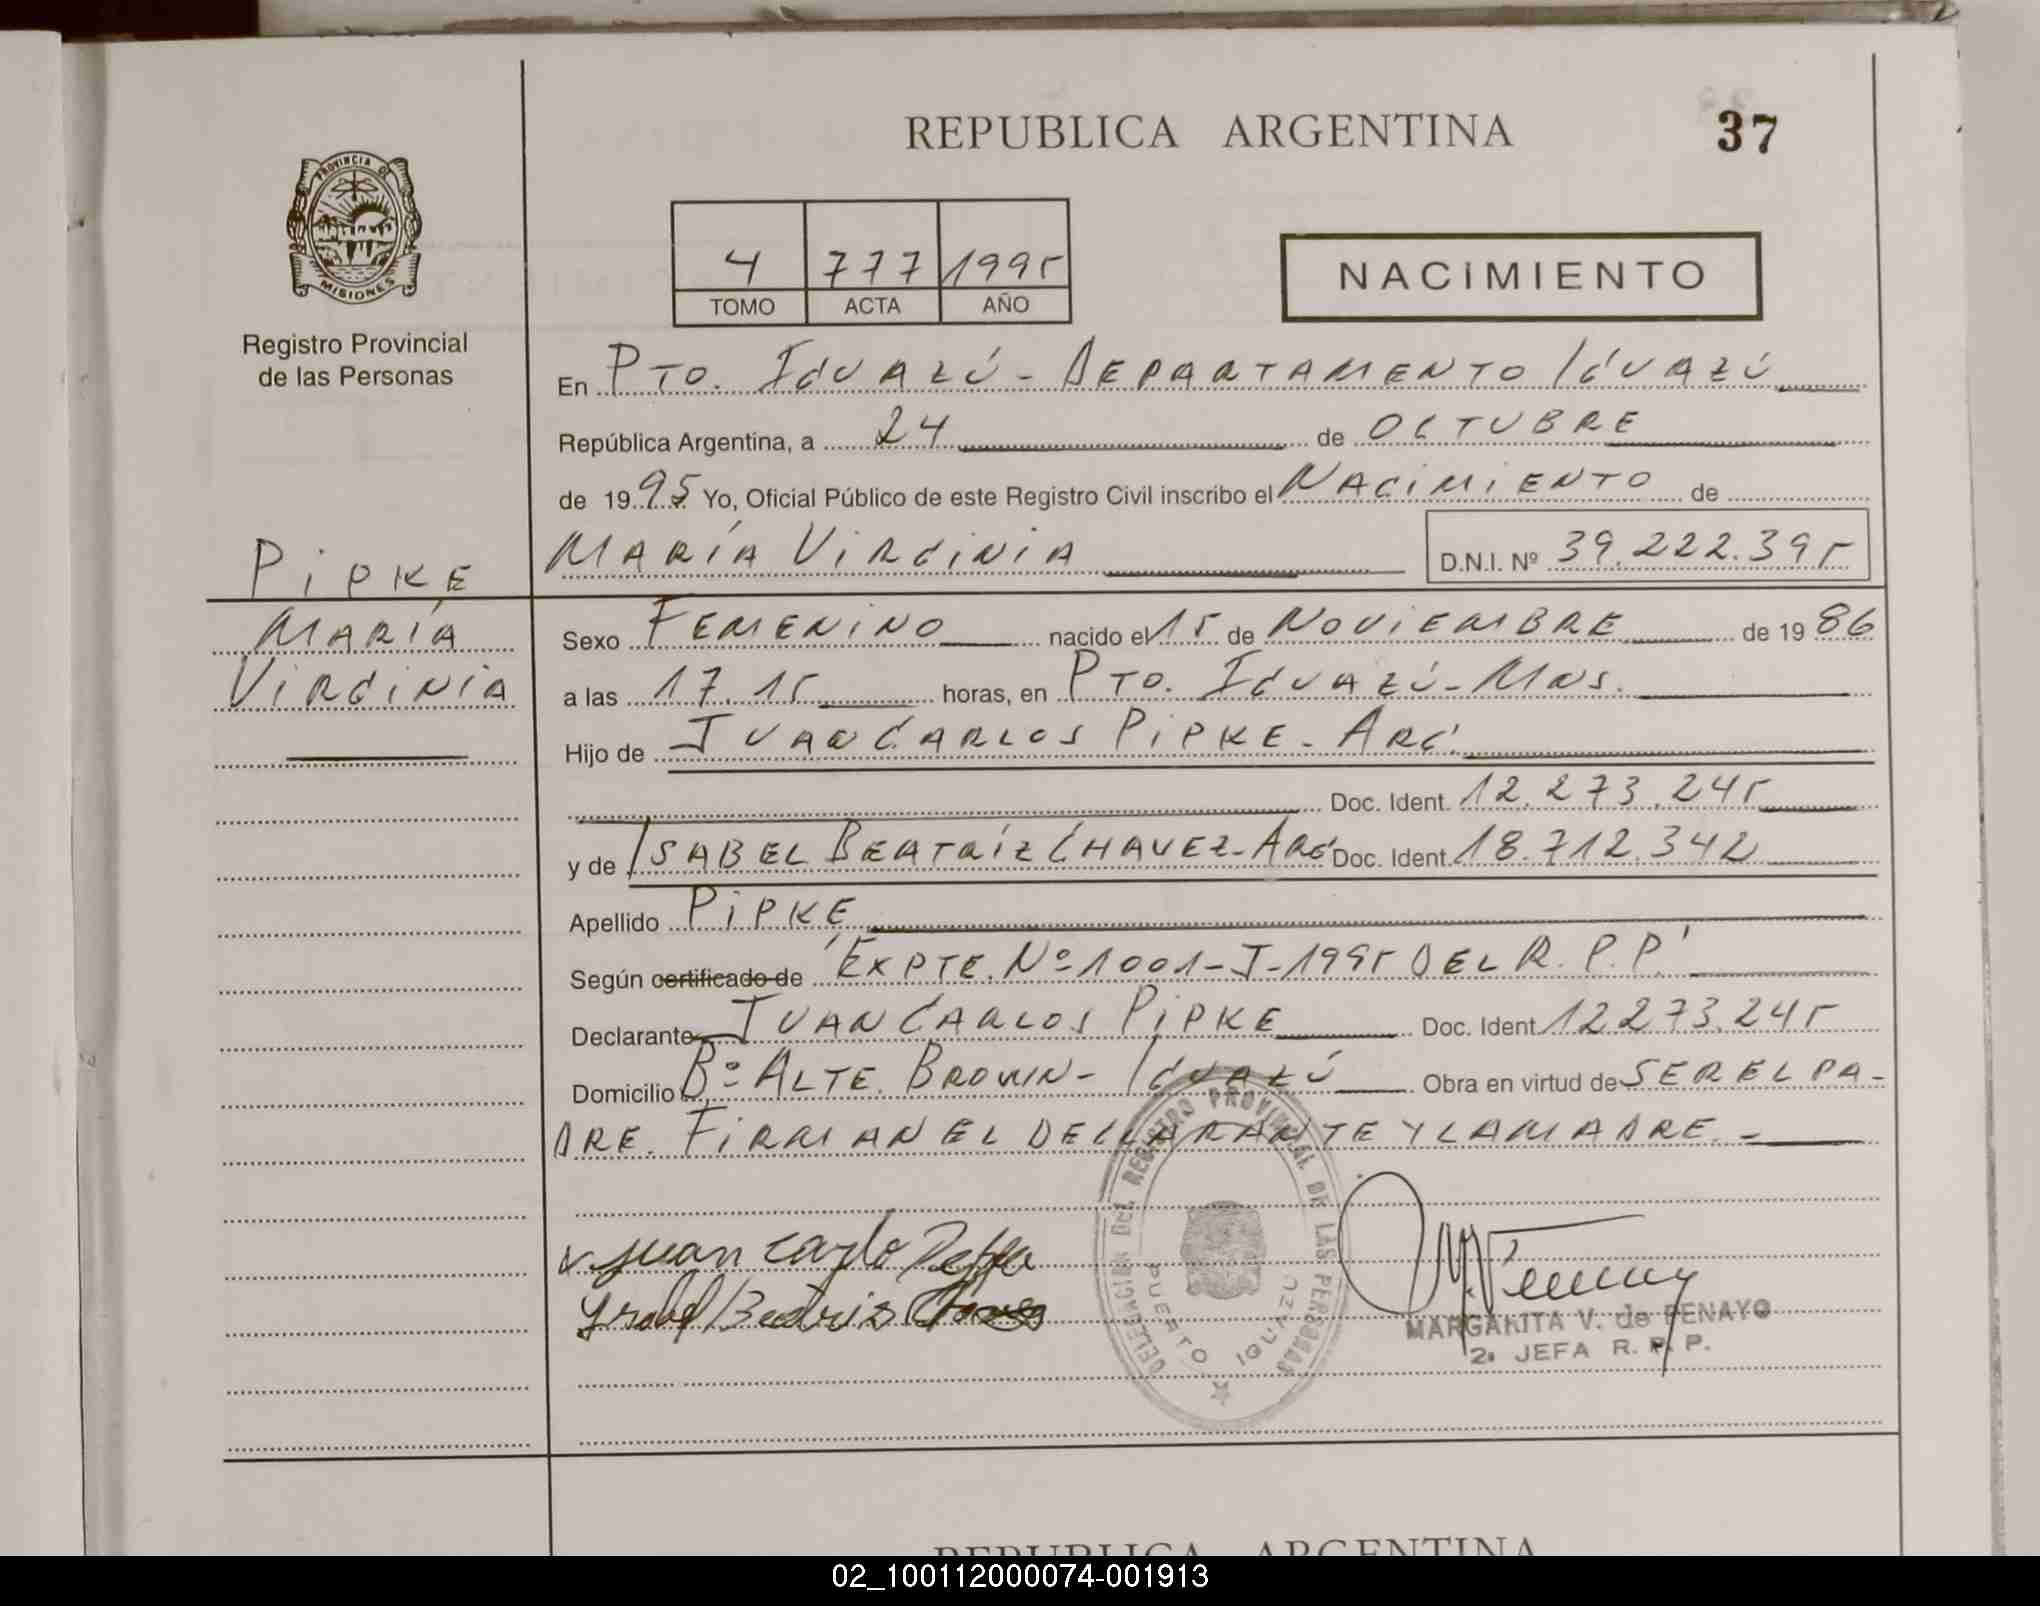 REPUBLICA ARGENTINA
37
PROVINCIA DE
MISIONES
Registro Provincial
de las Personas
4 777 1995
TOMO ACTA AÑO
NACIMIENTO
En PTO. IGUAZÚ - DEPARTAMENTO IGUAZÚ
República Argentina, a 24 de OCTUBRE
de 1995 Yo, Oficial Público de este Registro Civil inscribo el NACIMIENTO de
MARÍA VIRGINIA D.N.I. Nº 39.222.395
PIPKE
MARÍA
VIRGINIA
Sexo FEMENINO nacido el 15 de NOVIEMBRE de 1986
a las 17.15 horas, en PTO. IGUAZÚ - MNS.
Hijo de JUAN CARLOS PIPKE - ARG.
Doc. Ident. 12.273.245
y de ISABEL BEATRÍZ CHAVEZ - ARG Doc. Ident. 18.712.342
Apellido PIPKE
Según certificado de "EXPTE. Nº 1001-J-1995 DEL R.P.P."
Declarante JUAN CARLOS PIPKE Doc. Ident 12.273.245
Domicilio Bº ALTE. BROWN - IGUAZÚ Obra en virtud de SER EL PA-
DRE. FIRMAN EL DECLARANTE Y LA MADRE. -
DELEGACION DEL REGISTRO PROVINCIAL DE LAS PERSONAS
PUERTO IGUAZU
Juan Carlo
Isabel Beatriz
MARGARITA V. de PENAYO
2a JEFA R. P. P.
REPUBLICA ARGENTINA
02_100112000074-001913